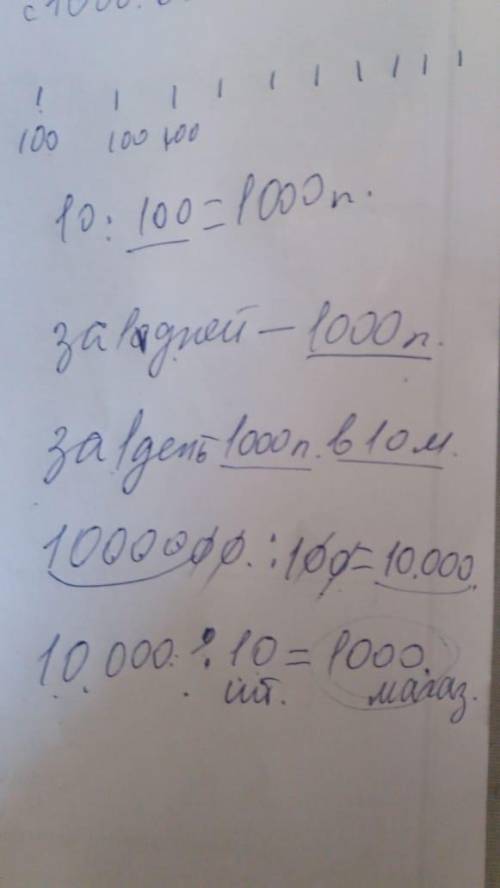 с 1000.
100 100 100
10 : 100 = 1000 п.
за дней – 1000 п.
за 1 день 1000 п. в 10 м.
1000000 : 100 = 10.000
10.000 : 10 = 1000.
шт. магаз.